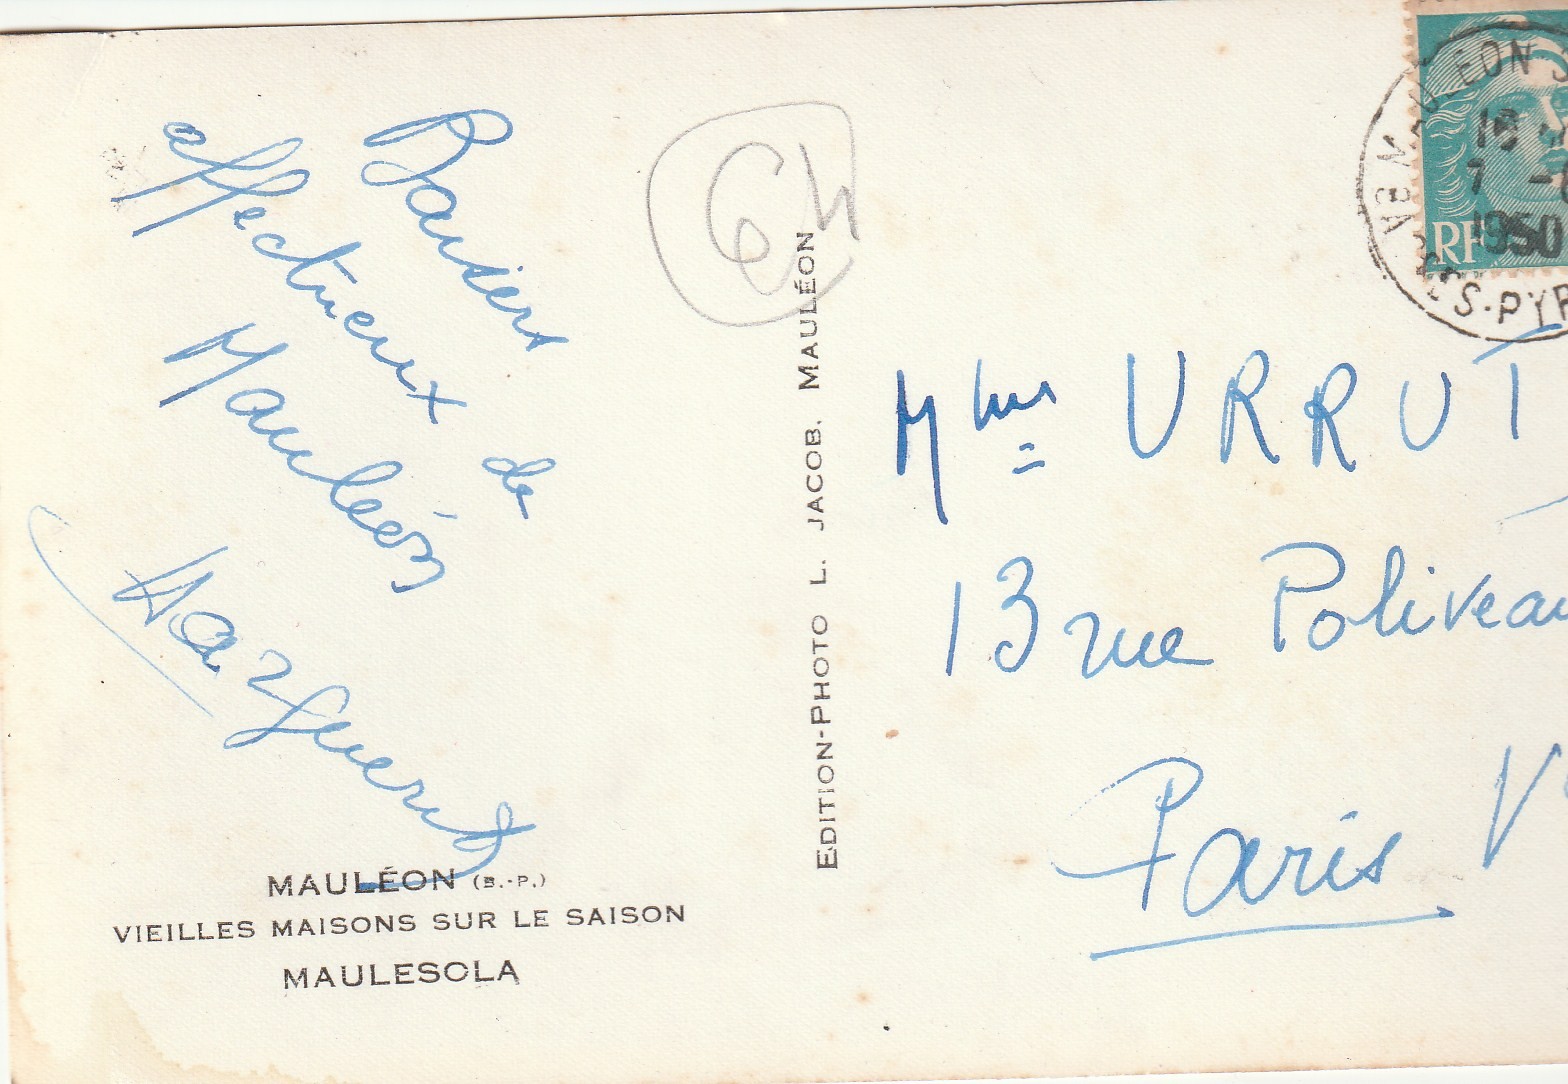 Baisers
affectueux de
Mauléon
Marguerite
MAULÉON (B.-P.)
VIEILLES MAISONS SUR LE SAISON
MAULESOLA
EDITION-PHOTO L. JACOB. MAULÉON
64
MAULEON S
19
7 -
1950
BASSES-PYR
RF
Mme URRUT
13 rue Poliveau
Paris V